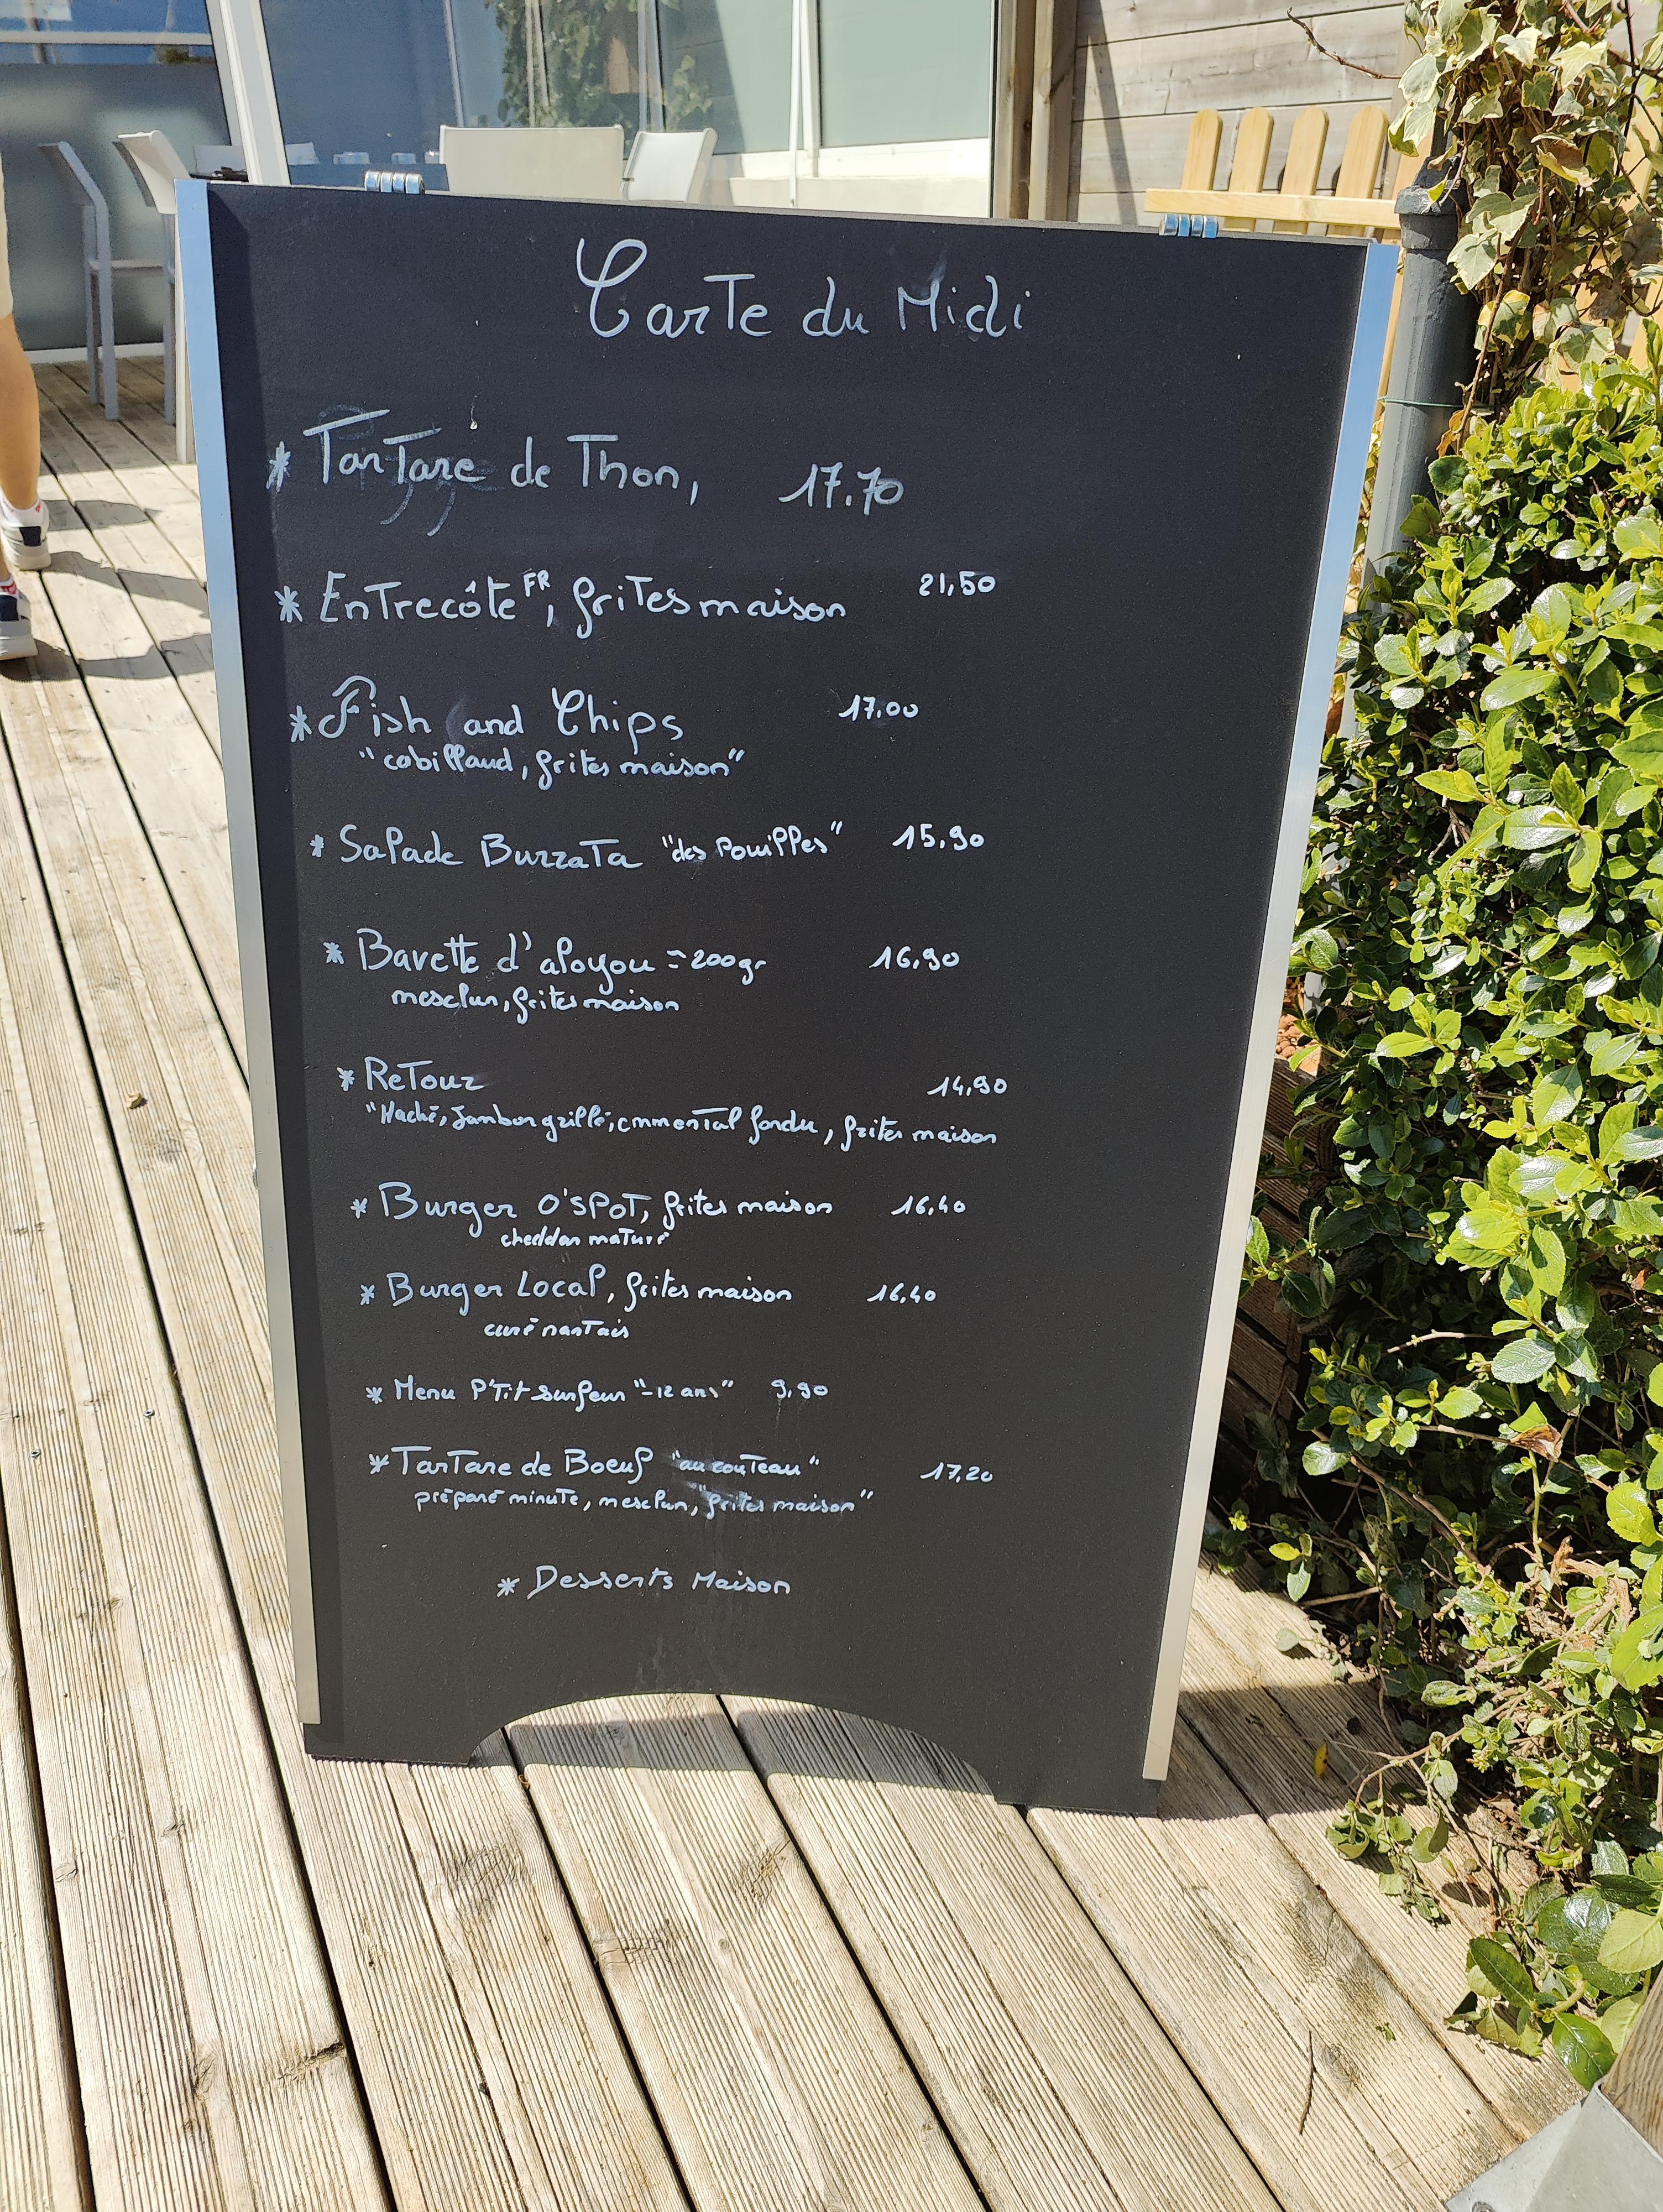 Carte du Midi
* Tartare de Thon, 17.70
* Entrecôte FR, frites maison 21,50
* Fish and Chips 17.00
"cabillaud, frites maison"
* Salade Burrata "des Pouilles" 15,90
* Bavette d'aloyau ≃ 200gr 16,90
mesclun, frites maison
* Retour 14,90
"Haché, Jambon grillé, emmental fondu, frites maison
* Burger O'SPOT, frites maison 16,40
cheddar mature
* Burger Local, frites maison 16,40
curé nantais
* Menu P'tit surfeur "-12 ans" 9,90
* Tartare de Boeuf "au couteau" 17,20
préparé minute, mesclun, "frites maison"
* Desserts Maison